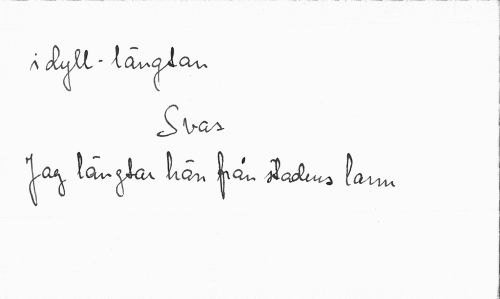 idyll-längtan
Svas
Jag längtar hän från stadens larm